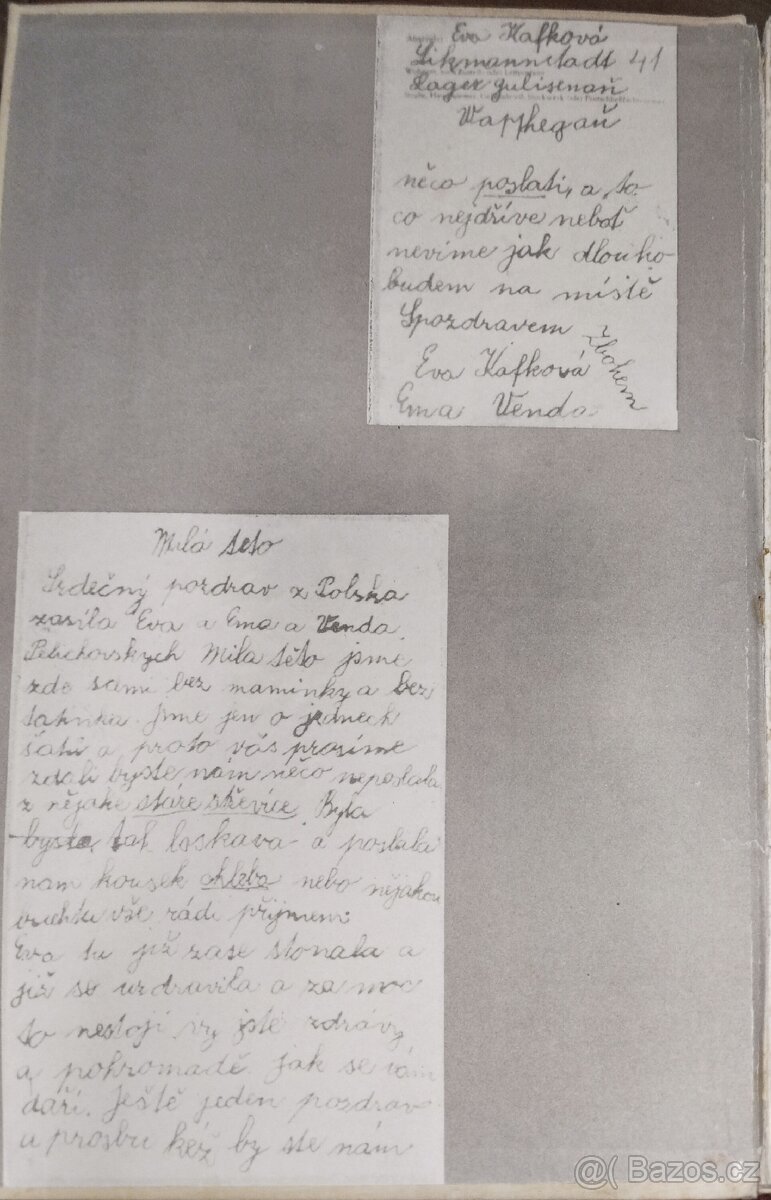 Milá teto
Srdečný pozdrav z Polska
zasíla Eva a Ema a Venda
Pelichovských Mila této jsme
zde sami bez maminky a bez
tatínka. Jsme jen o jednech
šatů a proto vás prosíme
zdali byste nám něco neposlala
z nějaké stáre střevíce Byla
byste tak laskava a poslala
nam kousek chleba nebo nějakou
buchtu vše rádi přijmem.
Eva tu již zase stonala a
již se uzdravila a za moc
to nestojí vy jste zdrávy
a pohromadě jak se vám
daří. Ještě jeden pozdrav
a prosbu kéž by ste nám
Eva Kafková
Litzmannstadt 41
Lager
něco poslati, a to
co nejdříve neboť
nevíme jak dlouho
budem na místě
Spozdravem Zbohem
Eva Kafková
Ema Venda
@( Bazos.cz